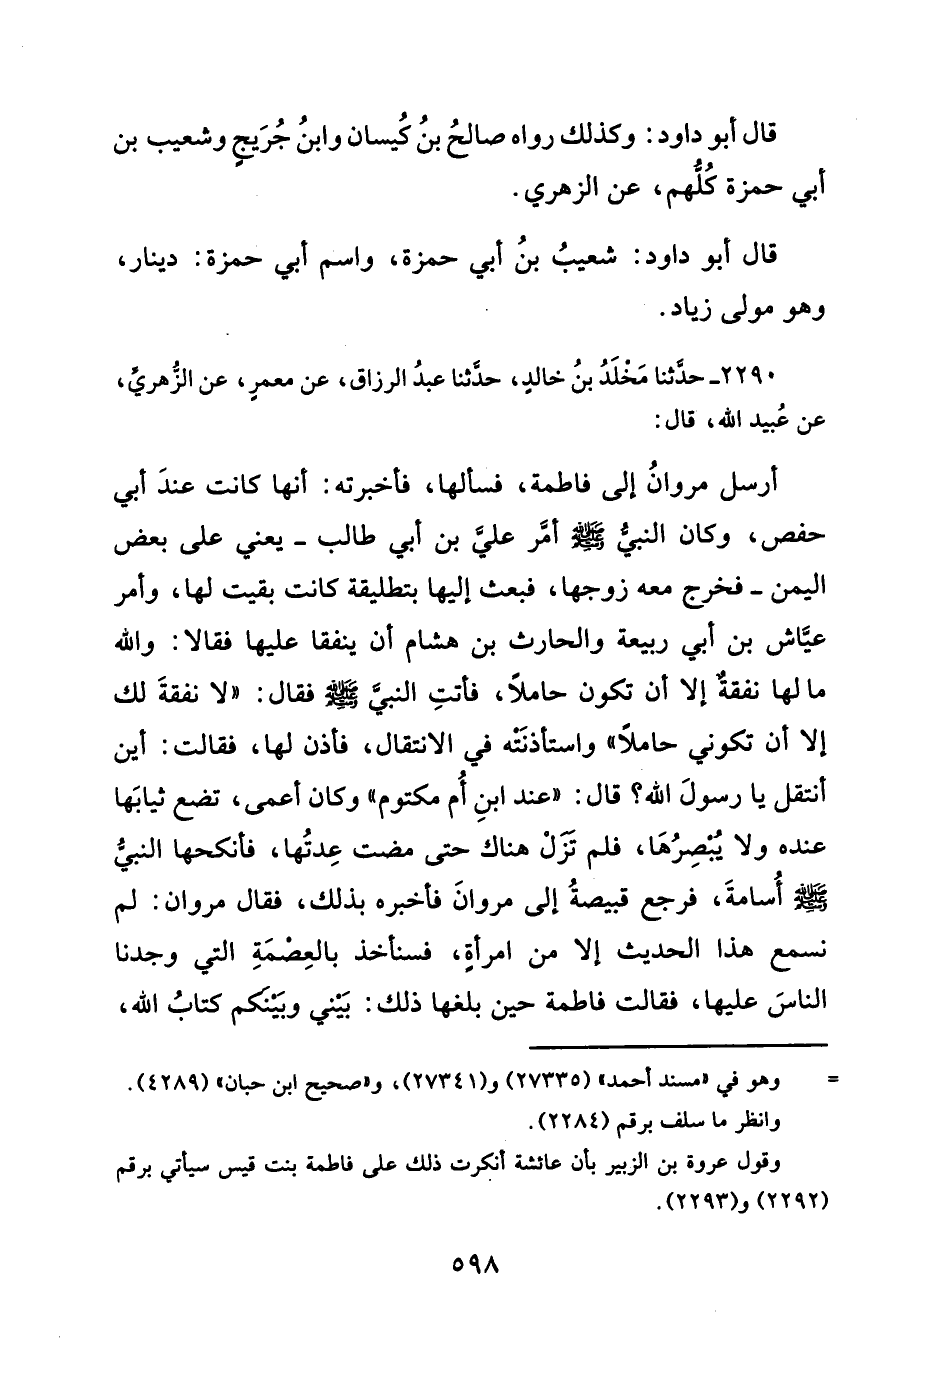 قال أبو داود: وكذلك رواه صالحُ بنُ كُيسان وابنُ جُرَيجٍ وشعيب بن
أبي حمزة كُلُّهم، عن الزهري.
قال أبو داود: شعيبُ بنُ أبي حمزة، واسم أبي حمزة: دينار،
وهو مولى زياد.
٢٢٩٠ـ حدَّثنا مَخْلَدُ بنُ خالدٍ، حدَّثنا عبدُ الرزاق، عن معمرٍ، عن الزُّهريِّ،
عن عُبيد الله، قال:
أرسل مروانُ إلى فاطمة، فسألها، فأخبرته: أنها كانت عندَ أبي
حفص، وكان النبيُّ ﷺ أمَّر عليَّ بن أبي طالب ـ يعني على بعض
اليمن ـ فخرج معه زوجها، فبعث إليها بتطليقة كانت بقيت لها، وأمر
عيَّاش بن أبي ربيعة والحارث بن هشام أن ينفقا عليها فقالا: والله
ما لها نفقةٌ إلا أن تكون حاملاً، فأتتِ النبيَّ ﷺ فقال: «لا نفقةَ لك
إلا أن تكوني حاملاً» واستأذنَتْه في الانتقال، فأذن لها، فقالت: أين
أنتقل يا رسولَ الله؟ قال: «عند ابنِ أُم مكتوم» وكان أعمى، تضع ثيابَها
عنده ولا يُبْصِرُهَا، فلم تَزَلْ هناك حتى مضت عِدتُها، فأنكحها النبيُّ
ﷺ أُسامةَ، فرجع قبيصةُ إلى مروانَ فأخبره بذلك، فقال مروان: لم
نسمع هذا الحديث إلا من امرأةٍ، فسنأخذ بالعِصْمَةِ التي وجدنا
الناسَ عليها، فقالت فاطمة حين بلغها ذلك: بَيْني وبَيْنَكم كتابُ الله،
= وهو في «مسند أحمد» (٢٧٣٣٥) و(٢٧٣٤١)، و«صحيح ابن حبان» (٤٢٨٩).
وانظر ما سلف برقم (٢٢٨٤).
وقول عروة بن الزبير بأن عائشة أنكرت ذلك على فاطمة بنت قيس سيأتي برقم
(٢٢٩٢) و(٢٢٩٣).
٥٩٨